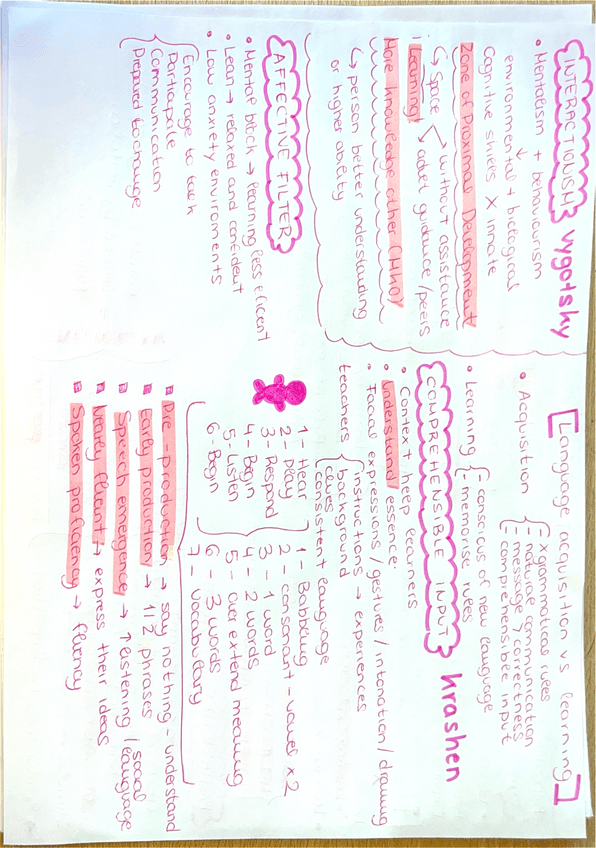 INTERACTIONISM vygotsky
• Mentalism + behaviourism
environmental + biological
Cognitive skills X innate
Zone of Proximal Development
↳ Space without assistance
adult guidance / peers
¡ Learning!
More knowledge other (MKO)
↳ person better understanding
or higher ability
AFFECTIVE FILTER
• Mental block → learning less eficient
• Lean → relaxed and confident
• Low anxiety enviroments
Encourage to talk
Participate
Communication
Prepared to change
[Language acquisition vs learning]
• Acquisition - X grammatical rules
- natural communication
- message correctness
- comprehensible input
• Learning - conscious of new language
- memorise rules
COMPREHENSIBLE INPUT Krashen
• Context help learners
• Understand essence:
• Facial expressions / gestures / intonation / drawing
teachers instructions → experiences
background
clues
consistent language
1 - Hear
2 - Play
3 - Respond
4 - Begin
5 - Listen
6 - Begin
1 - Babbling
2 - consonant - vowel x2
3 - 1 word
4 - 2 words
5 - over extend meaning
6 - 3 words
7 - vocabulary
Pre-production → say nothing - understand
Early production → 1/2 phrases
Speech emergence → ↑ listening / social language
Nearly fluent → express their ideas
Spoken proficiency → fluency